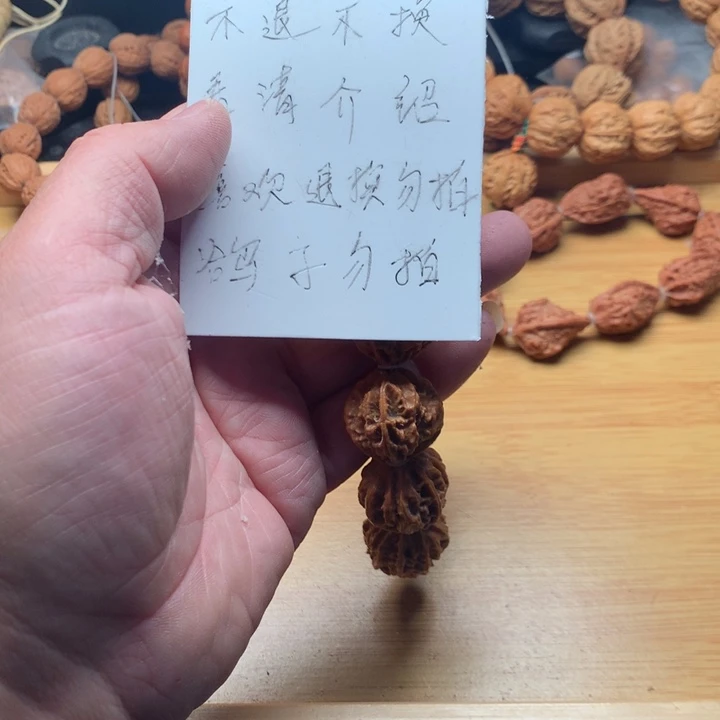 不退不换
看清介绍
喜欢退换勿拍
子勿拍